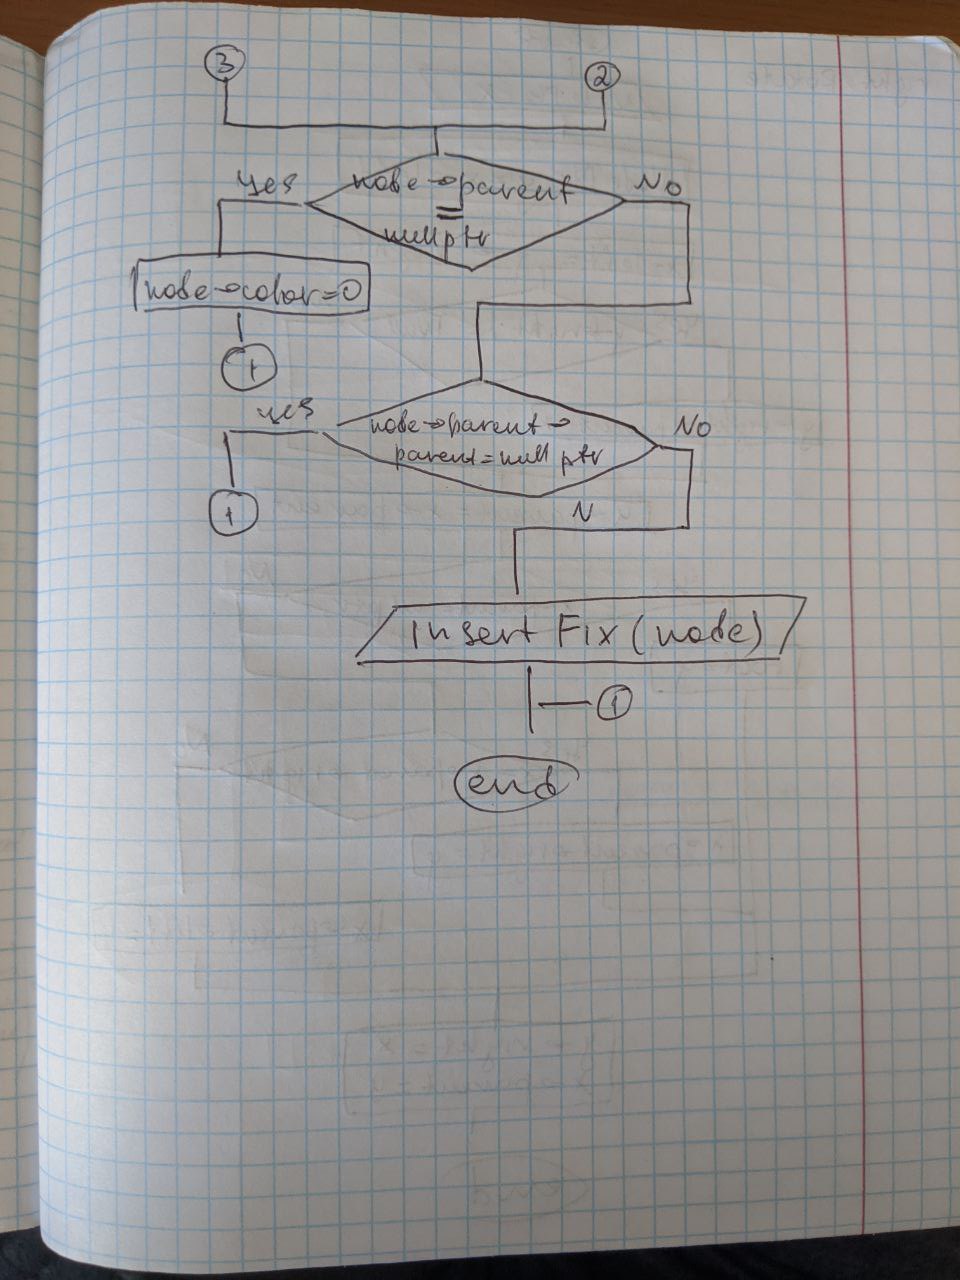 3
2
yes
node→parent
No
=
nullptr
node→color=0
1
yes
node→parent→
No
parent=nullptr
1
N
Insert Fix (node)
1
end